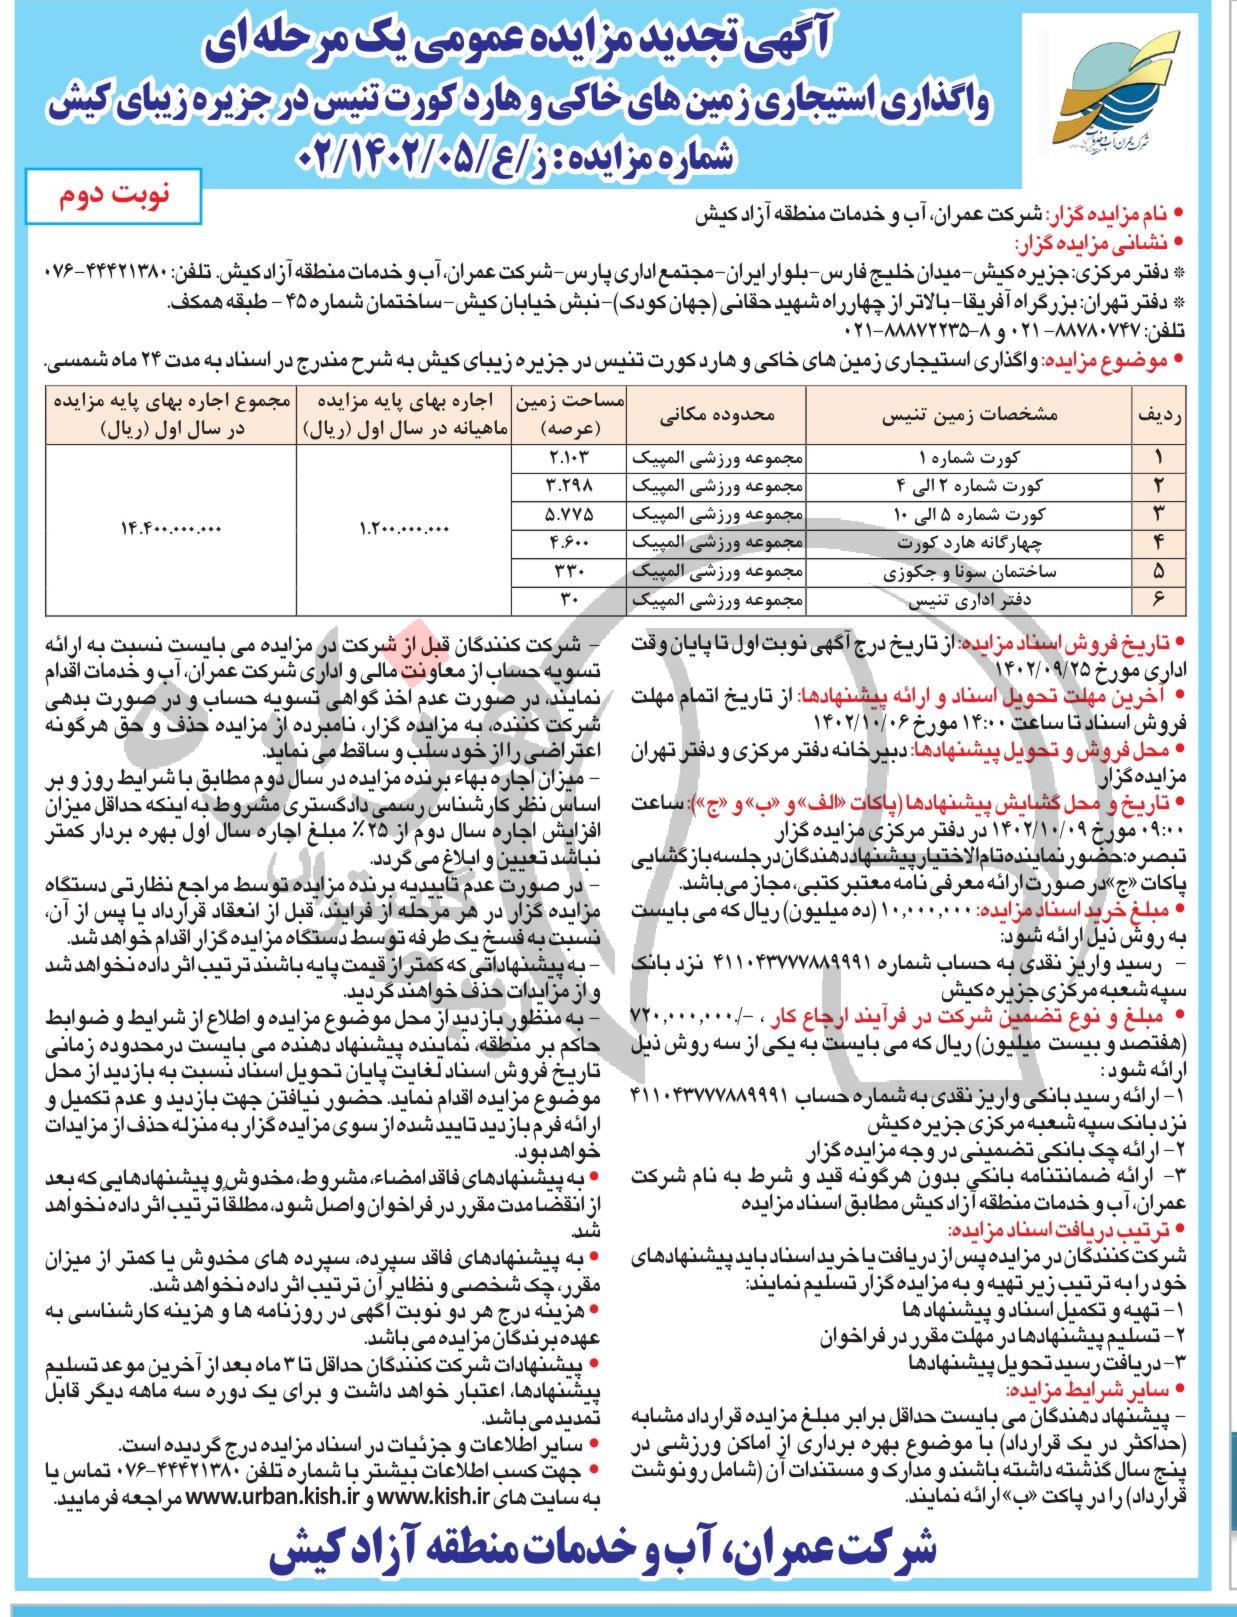 آگهی تجدید مزایده عمومی یک مرحله ای
واگذاری استیجاری زمین های خاکی و هارد کورت تنیس در جزیره زیبای کیش
شماره مزایده: ز/ع/۰۲/۱۴۰۲/۰۵
نوبت دوم
• نام مزایده گزار: شرکت عمران، آب و خدمات منطقه آزاد کیش
• نشانی مزایده گزار:
* دفتر مرکزی: جزیره کیش- میدان خلیج فارس- بلوار ایران- مجتمع اداری پارس- شرکت عمران، آب و خدمات منطقه آزاد کیش. تلفن: ۴۴۴۲۱۳۸۰-۰۷۶
* دفتر تهران: بزرگراه آفریقا- بالاتر از چهارراه شهید حقانی (جهان کودک)- نبش خیابان کیش- ساختمان شماره ۴۵ - طبقه همکف.
تلفن: ۸۸۷۸۰۷۴۷- ۰۲۱ و ۸-۸۸۸۷۲۲۳۵-۰۲۱
• موضوع مزایده: واگذاری استیجاری زمین های خاکی و هارد کورت تنیس در جزیره زیبای کیش به شرح مندرج در اسناد به مدت ۲۴ ماه شمسی.
ردیف | مشخصات زمین تنیس | محدوده مکانی | مساحت زمین (عرصه) | اجاره بهای پایه مزایده ماهیانه در سال اول (ریال) | مجموع اجاره بهای پایه مزایده در سال اول (ریال)
۱ | کورت شماره ۱ | مجموعه ورزشی المپیک | ۲.۱۰۳ | ۱.۲۰۰.۰۰۰.۰۰۰ | ۱۴.۴۰۰.۰۰۰.۰۰۰
۲ | کورت شماره ۲ الی ۴ | مجموعه ورزشی المپیک | ۳.۲۹۸
۳ | کورت شماره ۵ الی ۱۰ | مجموعه ورزشی المپیک | ۵.۷۷۵
۴ | چهارگانه هارد کورت | مجموعه ورزشی المپیک | ۴.۶۰۰
۵ | ساختمان سونا و جکوزی | مجموعه ورزشی المپیک | ۳۳۰
۶ | دفتر اداری تنیس | مجموعه ورزشی المپیک | ۳۰
• تاریخ فروش اسناد مزایده: از تاریخ درج آگهی نوبت اول تا پایان وقت
اداری مورخ ۱۴۰۲/۰۹/۲۵
• آخرین مهلت تحویل اسناد و ارائه پیشنهادها: از تاریخ اتمام مهلت
فروش اسناد تا ساعت ۱۴:۰۰ مورخ ۱۴۰۲/۱۰/۰۶
• محل فروش و تحویل پیشنهادها: دبیرخانه دفتر مرکزی و دفتر تهران
مزایده گزار
• تاریخ و محل گشایش پیشنهادها (پاکات «الف» و «ب» و «ج»): ساعت
۰۹:۰۰ مورخ ۱۴۰۲/۱۰/۰۹ در دفتر مرکزی مزایده گزار
تبصره: حضور نماینده تام الاختیار پیشنهاد دهندگان در جلسه بازگشایی
پاکات «ج» در صورت ارائه معرفی نامه معتبر کتبی، مجاز می باشد.
• مبلغ خرید اسناد مزایده: ۱۰,۰۰۰,۰۰۰ (ده میلیون) ریال که می بایست
به روش ذیل ارائه شود:
- رسید واریز نقدی به حساب شماره ۴۱۱۰۴۳۷۷۷۸۸۹۹۹۱ نزد بانک
سپه شعبه مرکزی جزیره کیش
• مبلغ و نوع تضمین شرکت در فرآیند ارجاع کار ، -/۷۲۰,۰۰۰,۰۰۰
(هفتصد و بیست میلیون) ریال که می بایست به یکی از سه روش ذیل
ارائه شود :
۱- ارائه رسید بانکی واریز نقدی به شماره حساب ۴۱۱۰۴۳۷۷۷۸۸۹۹۹۱
نزد بانک سپه شعبه مرکزی جزیره کیش
۲- ارائه چک بانکی تضمینی در وجه مزایده گزار
۳- ارائه ضمانتنامه بانکی بدون هرگونه قید و شرط به نام شرکت
عمران، آب و خدمات منطقه آزاد کیش مطابق اسناد مزایده
• ترتیب دریافت اسناد مزایده:
شرکت کنندگان در مزایده پس از دریافت یا خرید اسناد باید پیشنهادهای
خود را به ترتیب زیر تهیه و به مزایده گزار تسلیم نمایند:
۱- تهیه و تکمیل اسناد و پیشنهاد ها
۲- تسلیم پیشنهادها در مهلت مقرر در فراخوان
۳- دریافت رسید تحویل پیشنهادها
• سایر شرایط مزایده:
- پیشنهاد دهندگان می بایست حداقل برابر مبلغ مزایده قرارداد مشابه
(حداکثر در یک قرارداد) با موضوع بهره برداری از اماکن ورزشی در
پنج سال گذشته داشته باشند و مدارک و مستندات آن (شامل رونوشت
قرارداد) را در پاکت «ب» ارائه نمایند.
- شرکت کنندگان قبل از شرکت در مزایده می بایست نسبت به ارائه
تسویه حساب از معاونت مالی و اداری شرکت عمران، آب و خدمات اقدام
نمایند، در صورت عدم اخذ گواهی تسویه حساب و در صورت بدهی
شرکت کننده، به مزایده گزار، نامبرده از مزایده حذف و حق هرگونه
اعتراضی را از خود سلب و ساقط می نماید.
- میزان اجاره بهاء برنده مزایده در سال دوم مطابق با شرایط روز و بر
اساس نظر کارشناس رسمی دادگستری مشروط به اینکه حداقل میزان
افزایش اجاره سال دوم از ۲۵٪ مبلغ اجاره سال اول بهره بردار کمتر
نباشد تعیین و ابلاغ می گردد.
- در صورت عدم تایید به برنده مزایده توسط مراجع نظارتی دستگاه
مزایده گزار در هر مرحله از فرایند، قبل از انعقاد قرارداد یا پس از آن،
نسبت به فسخ یک طرفه توسط دستگاه مزایده گزار اقدام خواهد شد.
- به پیشنهاداتی که کمتر از قیمت پایه باشند ترتیب اثر داده نخواهد شد
و از مزایدات حذف خواهند گردید.
- به منظور بازدید از محل موضوع مزایده و اطلاع از شرایط و ضوابط
حاکم بر منطقه، نماینده پیشنهاد دهنده می بایست در محدوده زمانی
تاریخ فروش اسناد لغایت پایان تحویل اسناد نسبت به بازدید از محل
موضوع مزایده اقدام نماید. حضور نیافتن جهت بازدید و عدم تکمیل و
ارائه فرم بازدید تایید شده از سوی مزایده گزار به منزله حذف از مزایدات
خواهد بود.
• به پیشنهادهای فاقد امضاء، مشروط، مخدوش و پیشنهادهایی که بعد
از انقضا مدت مقرر در فراخوان واصل شود، مطلقاً ترتیب اثر داده نخواهد
شد.
• به پیشنهادهای فاقد سپرده، سپرده های مخدوش یا کمتر از میزان
مقرر، چک شخصی و نظایر آن ترتیب اثر داده نخواهد شد.
• هزینه درج هر دو نوبت آگهی در روزنامه ها و هزینه کارشناسی به
عهده برندگان مزایده می باشد.
• پیشنهادات شرکت کنندگان حداقل تا ۳ ماه بعد از آخرین موعد تسلیم
پیشنهادها، اعتبار خواهد داشت و برای یک دوره سه ماهه دیگر قابل
تمدید می باشد.
• سایر اطلاعات و جزئیات در اسناد مزایده درج گردیده است.
• جهت کسب اطلاعات بیشتر با شماره تلفن ۴۴۴۲۱۳۸۰-۰۷۶ تماس یا
به سایت های www.kish.ir و www.urban.kish.ir مراجعه فرمایید.
شرکت عمران، آب و خدمات منطقه آزاد کیش